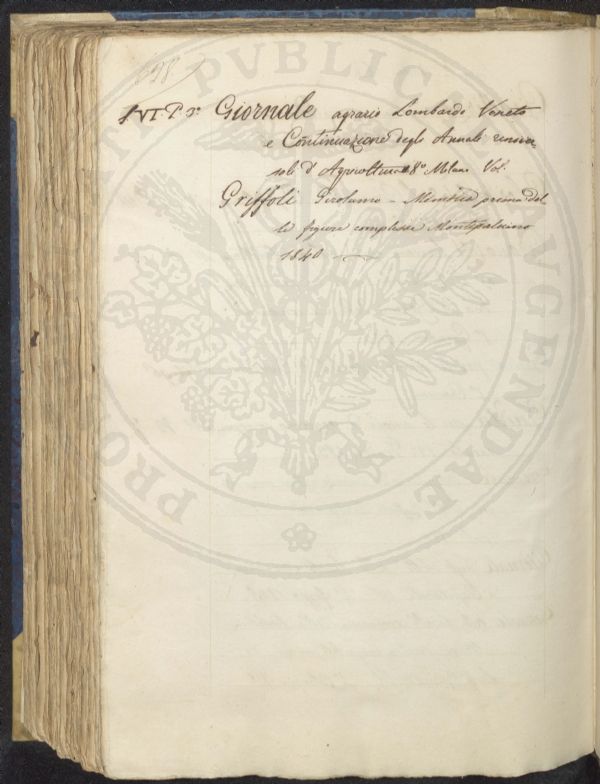 648
VI. P. 3º Giornale agrario Lombardo Veneto
e Continuazione degli Annali univer
sali d'Agricoltura 8º Milano Vol.
Griffoli Girolamo - Memoria prima del
le figure complesse Montepulciano
1840
PUBLIC
AUGENDAE
PRO